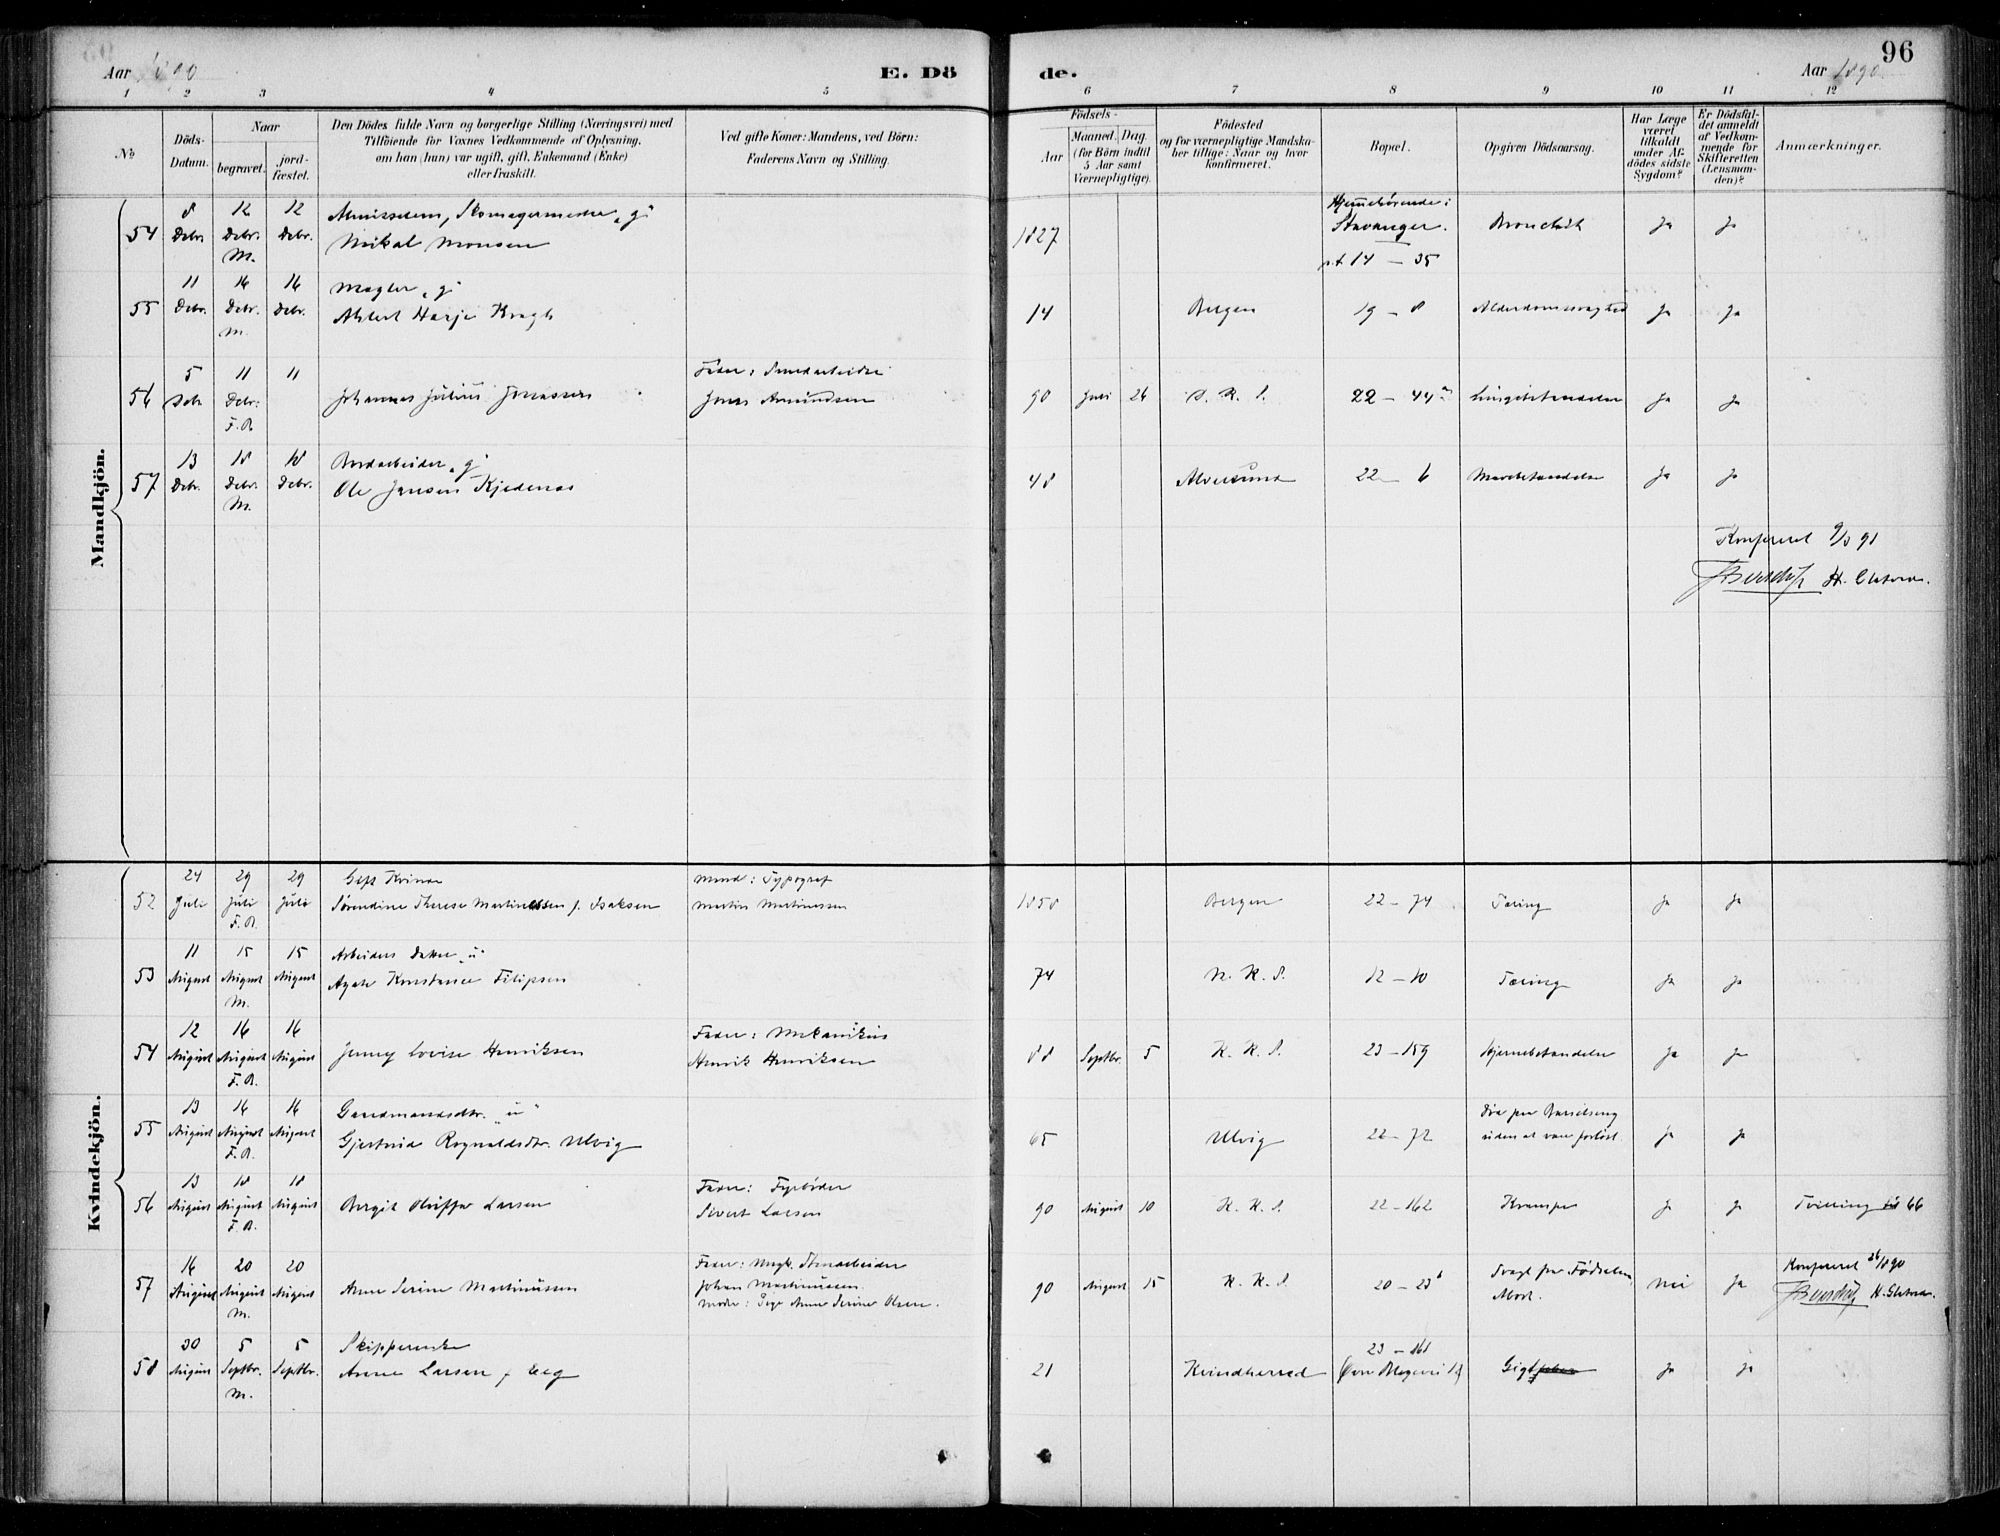 96
Aar 1890
E. Döde.
Aar 1890
1 2 3 4 5 6 7 8 9 10 11 12
No
Döds-Datum.
Naar
begravet.
jordfæstet.
Den Dödes fulde Navn og borgerlige Stilling (Næringsvei) med
Tilföiende for Voxnes Vedkommende af Oplysning,
om han (hun) var ugift, gift, Enkemand (Enke)
eller fraskilt.
Ved gifte Koner: Mandens, ved Börn:
Faderens Navn og Stilling.
Födsels-
Aar
Maaned. Dag.
(for Börn indtil
5 Aar samt
Værnepligtige).
Födested
og for værnepligtige Mandska-
ber tillige: Naar og hvor
konfirmeret.
Bopæl.
Opgiven Dödsaarsag.
Har Læge
været
tilkaldt
under Af-
dödes sidste
Sygdom?
Er Dödsfal-
det anmeldt
af Vedkom-
mende for
Skifteretten
(Lensman-
den)?
Anmærkninger.
Mandkjön.
54 8 Debr. 12 Debr. M. 12 Debr. Skomagermester "g"
Mikal Monsen 1827 Hjemmehörende i
Stavanger.
p.t. 14 – 35 Bronchit Ja Ja
55 11 Debr. 16 Debr. M. 16 Debr. Mægler "g"
Ahlert Harje Krogh 14 Bergen 19 – 8 Alderdomssvaghed Ja Ja
56 5 Debr 11 Debr. F.R. 11 Johannes Julius Jonassen Fader:
Jonas Asmundsen 90 Juli 26 22 – 44 a Lungebetændelse Ja Ja
57 13 Debr. 18 Debr. M. 18 Debr. "g"
Ole Jansen Kjedenæs 48 Alversund 22 – 6 Ja Ja
Konfereret 9/3 91
Kvindekjön.
52 24 Juli 29 Juli F.R. 29 Juli Gift Kvinde
Sörendine Therese Martinussen f. Isaksen Mand: Typograf
Martin Martinussen 1858 Bergen 22 – 74 Tæring Ja Ja
53 11 August 15 August M. 15 August Arbeiders Datter "u"
Agate Konstance Filipsen 74 N. K. S. 12 – 10 Tæring Ja Ja
54 12 August 16 August F.R. 16 August Jenny Lovise Henriksen Fader: Mekanikus
Henrik Henriksen 88 Septbr. 5 K. K. S. 23 – 159 Hjernebetændelse Ja Ja
55 13 August 16 August F.R. 16 August Gaardmandsdtr. "u"
Gjertrud Rognaldsdtr. Ulvig 65 Ulvig 22 – 72 Döde paa Barselseng
uden at være forlöst. Ja Ja
56 13 August 18 August F.R. 18 August Bergit Larsen Fader: Fyrböder
Sivert Larsen 90 August 10 K. K. S. 22 – 162 Krampe Ja Ja Tvilling til 66
57 16 August 20 August M. 20 August Anne Serine Martinussen Fader: Ungk. Stenarbeider
Johan Martinussen.
Moder: Pige Anne Serine Olsen. 90 August 15 K. K. S. 20 – 23 b Svagt fra Födselen,
Abort. Nei Ja Konfereret 1890
58 30 August 5 Septbr. M. 5 Septbr. Skipperenke
Anna Larsen f. Eeg 21 Kvindherred 23 – 161 Gigt Ja Ja